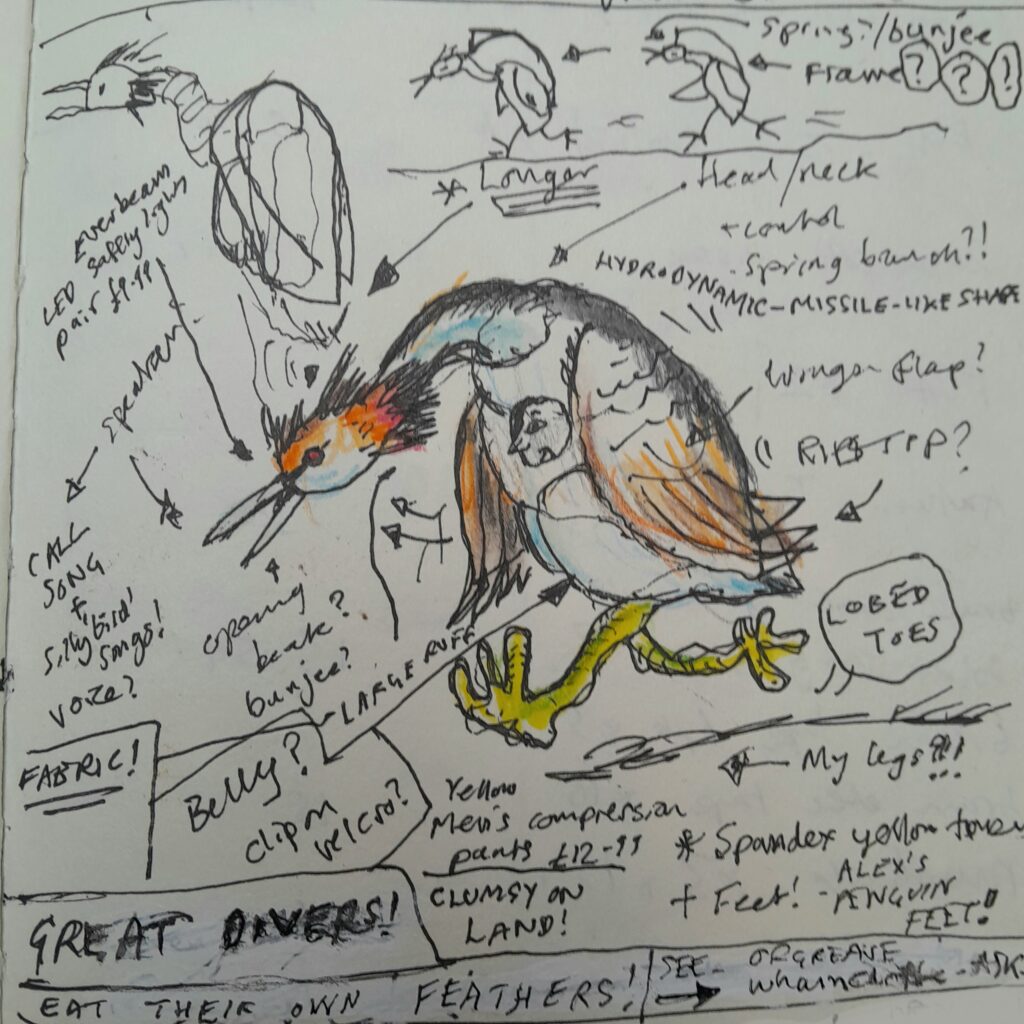 Spring?/bunjee
Frame ? ? !
* Longer
Head/neck
+ control
- Spring ?!
HYDRODYNAMIC-MISSILE-LIKE SHAPE
LED Everbeam
safety light
pair £9.99
Wings flap?
RIPSTOP?
CALL
SONG
+
silly 'bird'
songs!
voice?
opening
beak?
bunjee?
LARGE RUFF
LOBED
TOES
FABRIC!
Belly?
clip on
velcro?
My legs?!!!
Yellow
Men's compression
pants £12-99
* Spandex yellow
+ Feet! - ALEX'S
PENGUIN
FEET!!
CLUMSY ON
LAND!
GREAT DIVERS!
EAT THEIR OWN FEATHERS!
SEE - ORGREAVE